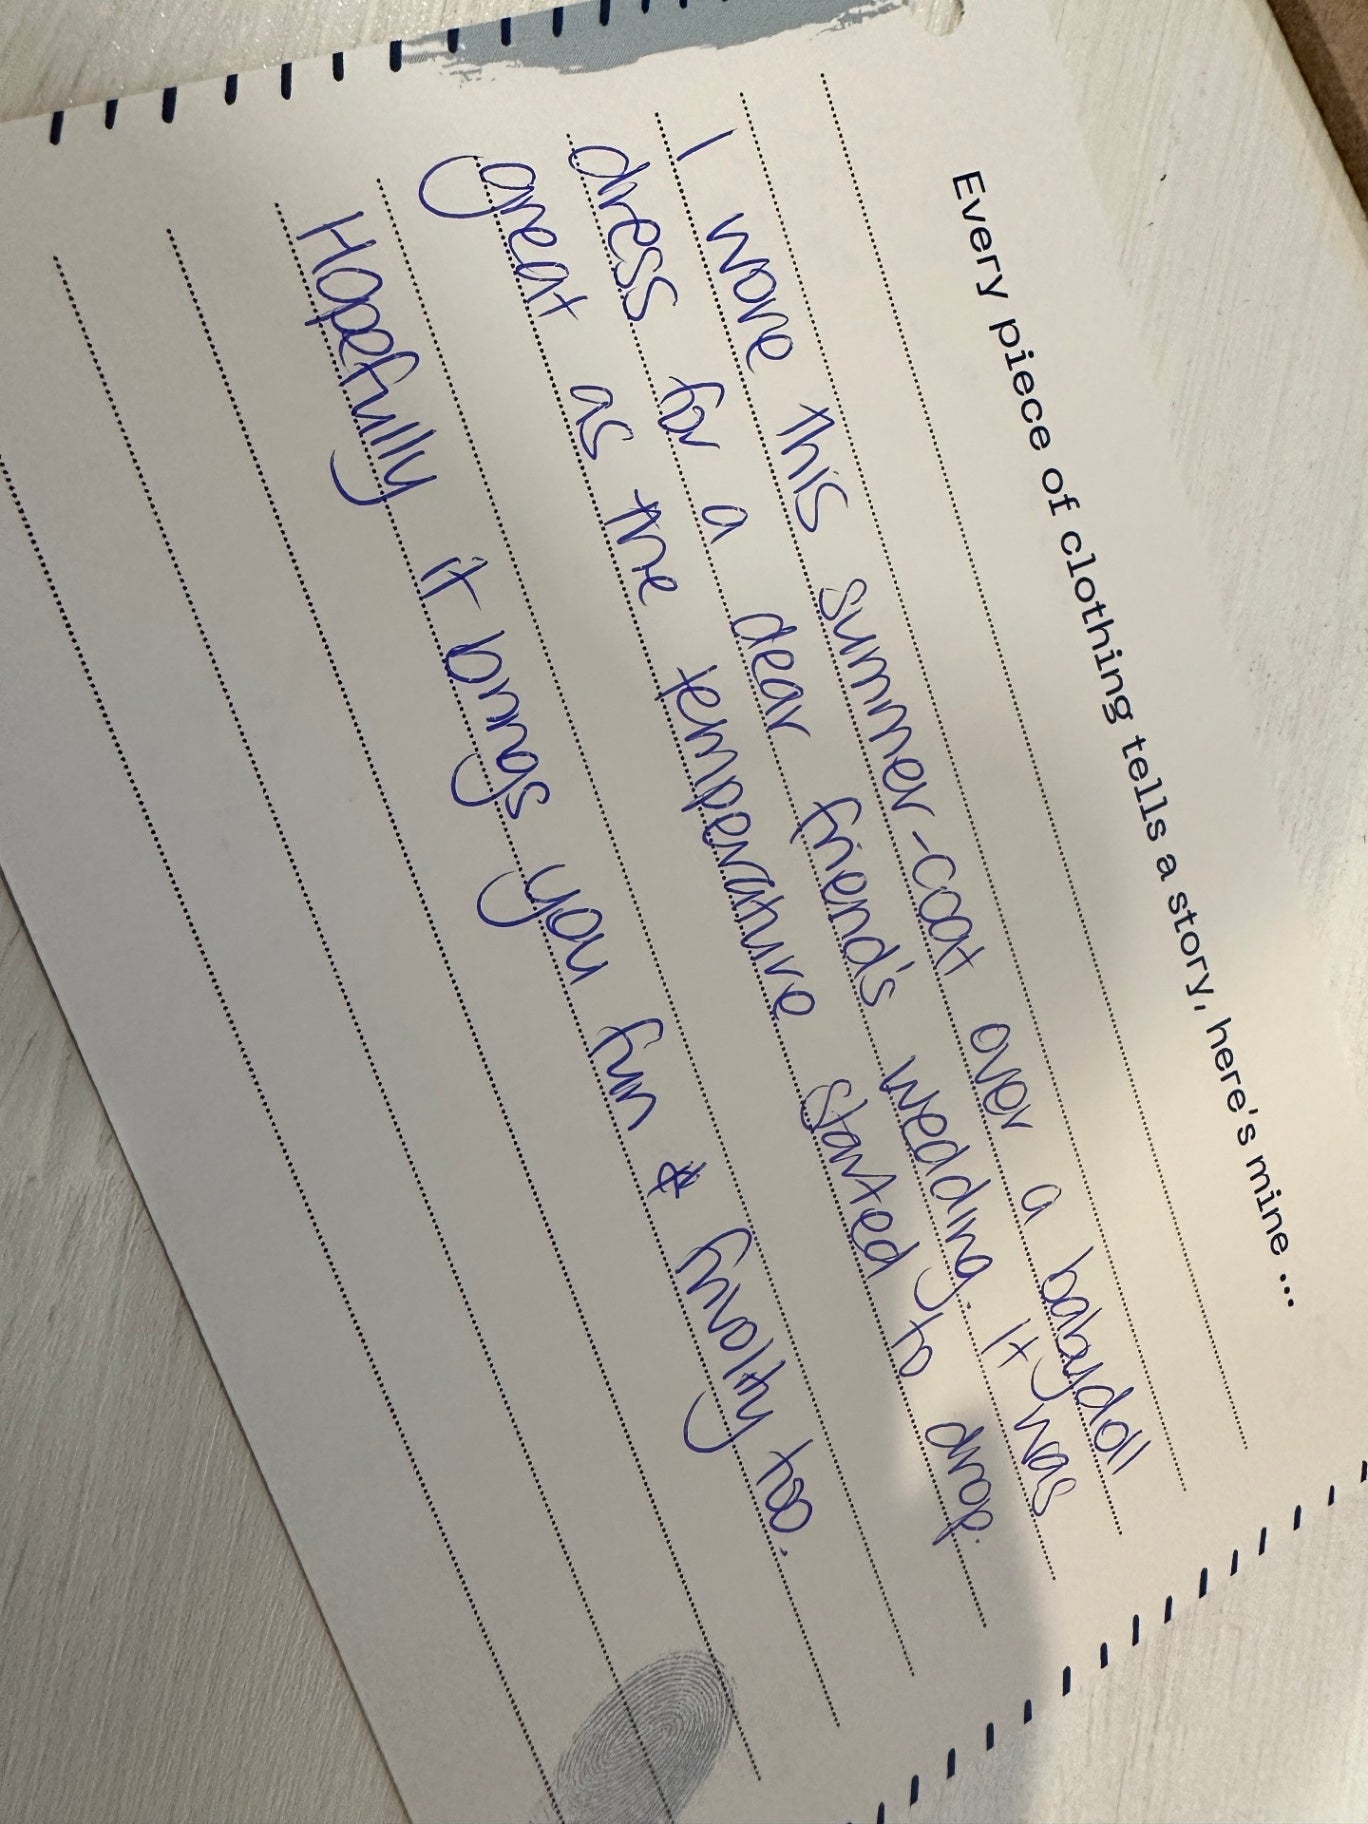 Every piece of clothing tells a story, here's mine ...
I wore this summer-coat over a babydoll
dress for a dear friend's wedding. It was
great as the temperature started to drop.
Hopefully it brings you fun & frivolity too.